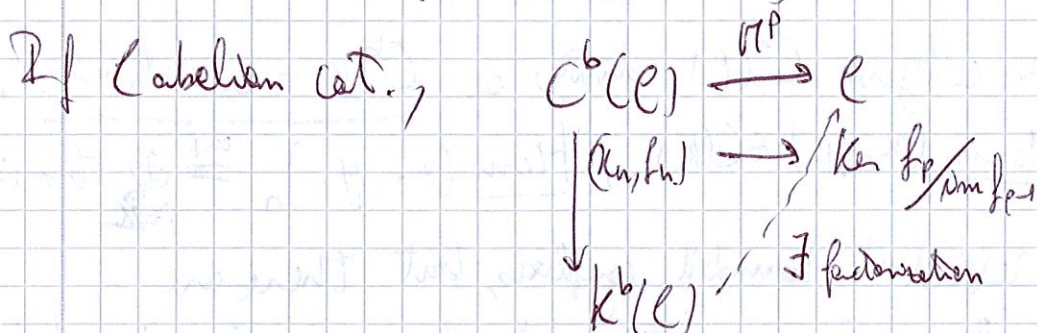 If C abelian cat., C^b(C) H^p → C
(x_n, f_n) → Ker f_p / im f_{p-1}
∃ factorization
K^b(C)